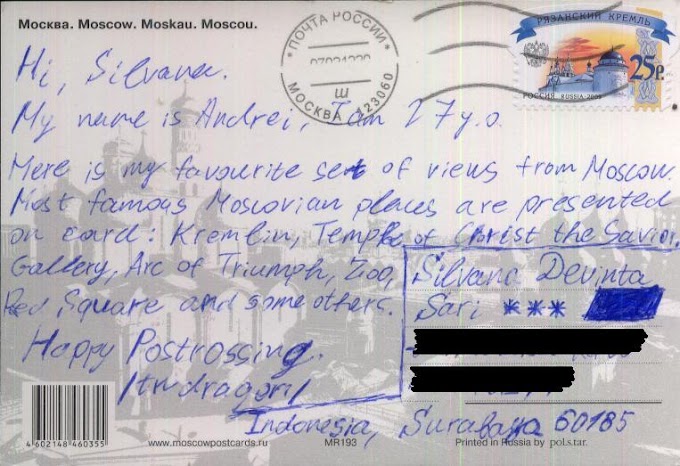 Москва. Moscow. Moskau. Moscou.
ПОЧТА РОССИИ
МОСКВА 123060
Ш
РЯЗАНСКИЙ КРЕМЛЬ
25р
РОССИЯ RUSSIA 2009
Hi, Silvana.
My name is Andrei, I am 27 y.o.
Here is my favourite set of views from Moscow.
Most famous Moscovian places are presented
on card: Kremlin, Temple of Christ the Savior,
Gallery, Arc of Triumph, Zoo,
Red Square and some others.
Happy Postrossing.
Silvana Devinta
Sari ***
Indonesia, Surabaya 60185
4 602148 460355
www.moscowpostcards.ru
MR193
Printed in Russia by pol.s.tar.